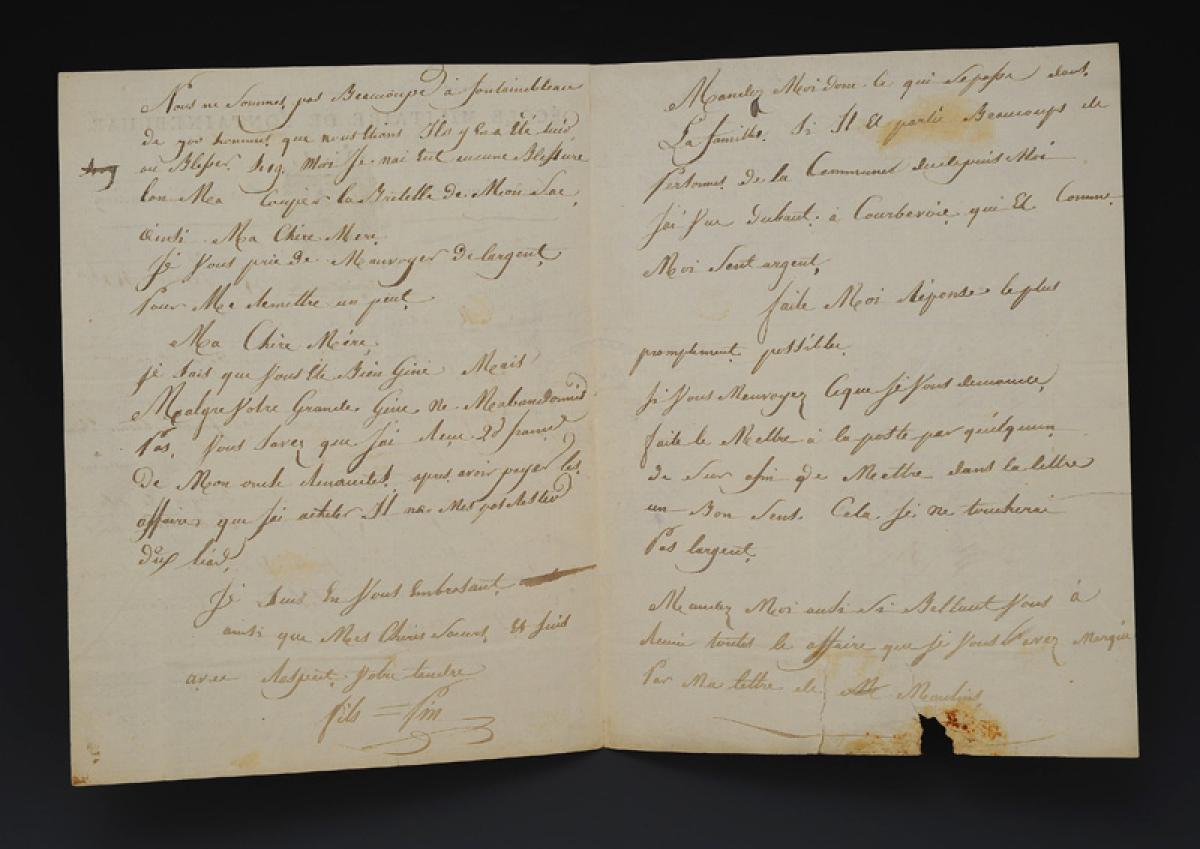 Nous ne Sommes pas Beaucoupé à fontainebleau
de 900 hommes que nous étions Il y En a Eté tué
ou Blesser 809. Moi Je nai Eut aucune Blessure
lon Ma Coupér la Bretelle de Mon Sac,
ainsi Ma Chère Mere
Je Vous prie de Manvoyer de largent,
Pour Me Remettre un peut
Ma Chère Mère,
je Sais que Vous Ete Bien Gèné Mais
Malgre Votre Grande Gène ne Mabandonné
Pas, Vous Savez que J'ai Reçu francs
De Mon oncle apres avoir payer les
affaires que J'ai acheter Il ne Mes pas Resté
deux liad,
Je En Vous Embrasant
ainsi que Mes Chères Soeurs, Et Suis
avec Respect Votre tendre
fils = fin
Mandez Moi donc ce qui Sepasse dans
La famille. Si Il Et partie Beaucoups de
Personnes de la Communes dudepuis Moi
J'ai Vue Dubaut. à Courbevoie qui Et Comme
Moi Sent argent,
faite Moi Réponse le plus
promptement possible.
Si Vous Menvoyez Ceque Je Vous demande,
faite le Mettre à la poste par quélquun
de Sur afin de Mettre dans la lettre
un Bon Sens. Cela Je ne toucherai
Pas largent.
Mandez Moi ausi Si Vous à
Remie toutes le affaire que Je Vous avez Marqué
Par Ma lettre de Moulins